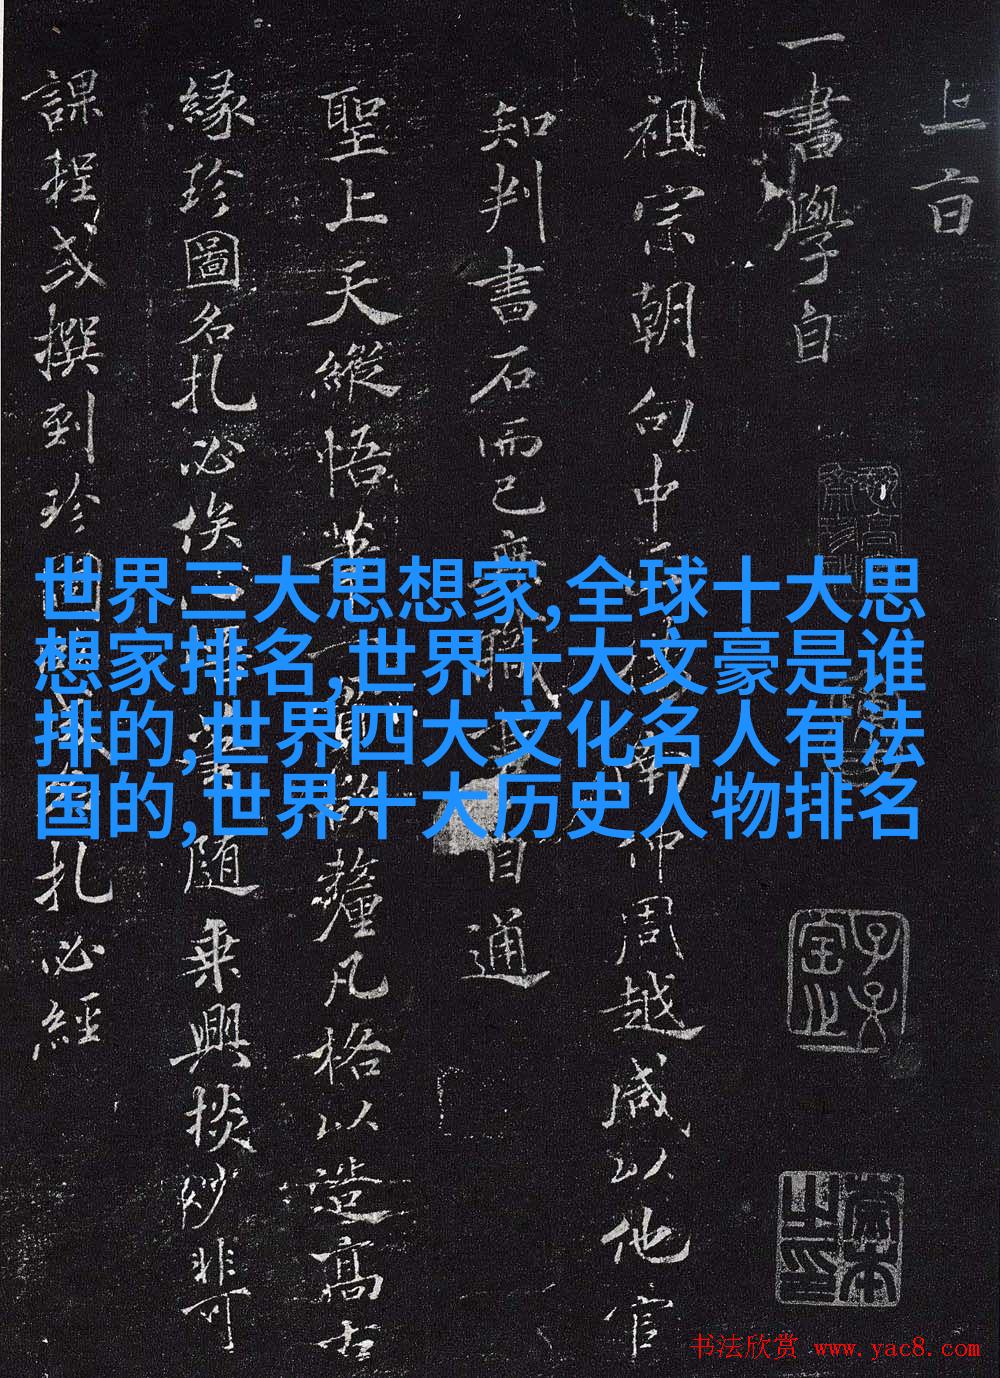 上亩
一書學自
祖宗朝向中
仲周越咸以他官
知判書石而已無職
自通
聖上天縱悟筆
釐凡格以造高古
緣珍圖名札必俟
隨乗興掞妙非可
課程或撰到珍
札必經
世界三大思想家,全球十大思
想家排名,世界十大文豪是谁
排的,世界四大文化名人有法
国的,世界十大历史人物排名
书法欣赏 www.yac8.com